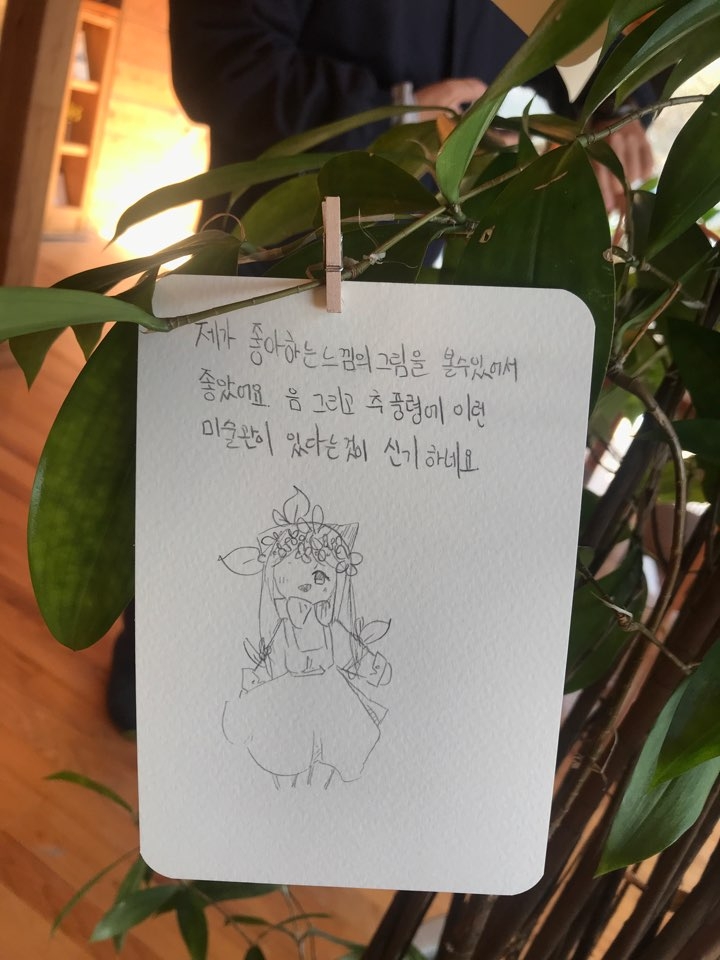 제가 좋아하는 느낌의 그림을 볼수있어서
좋았어요. 음 그리고 추풍령에 이런
미술관이 있다는것이 신기하네요